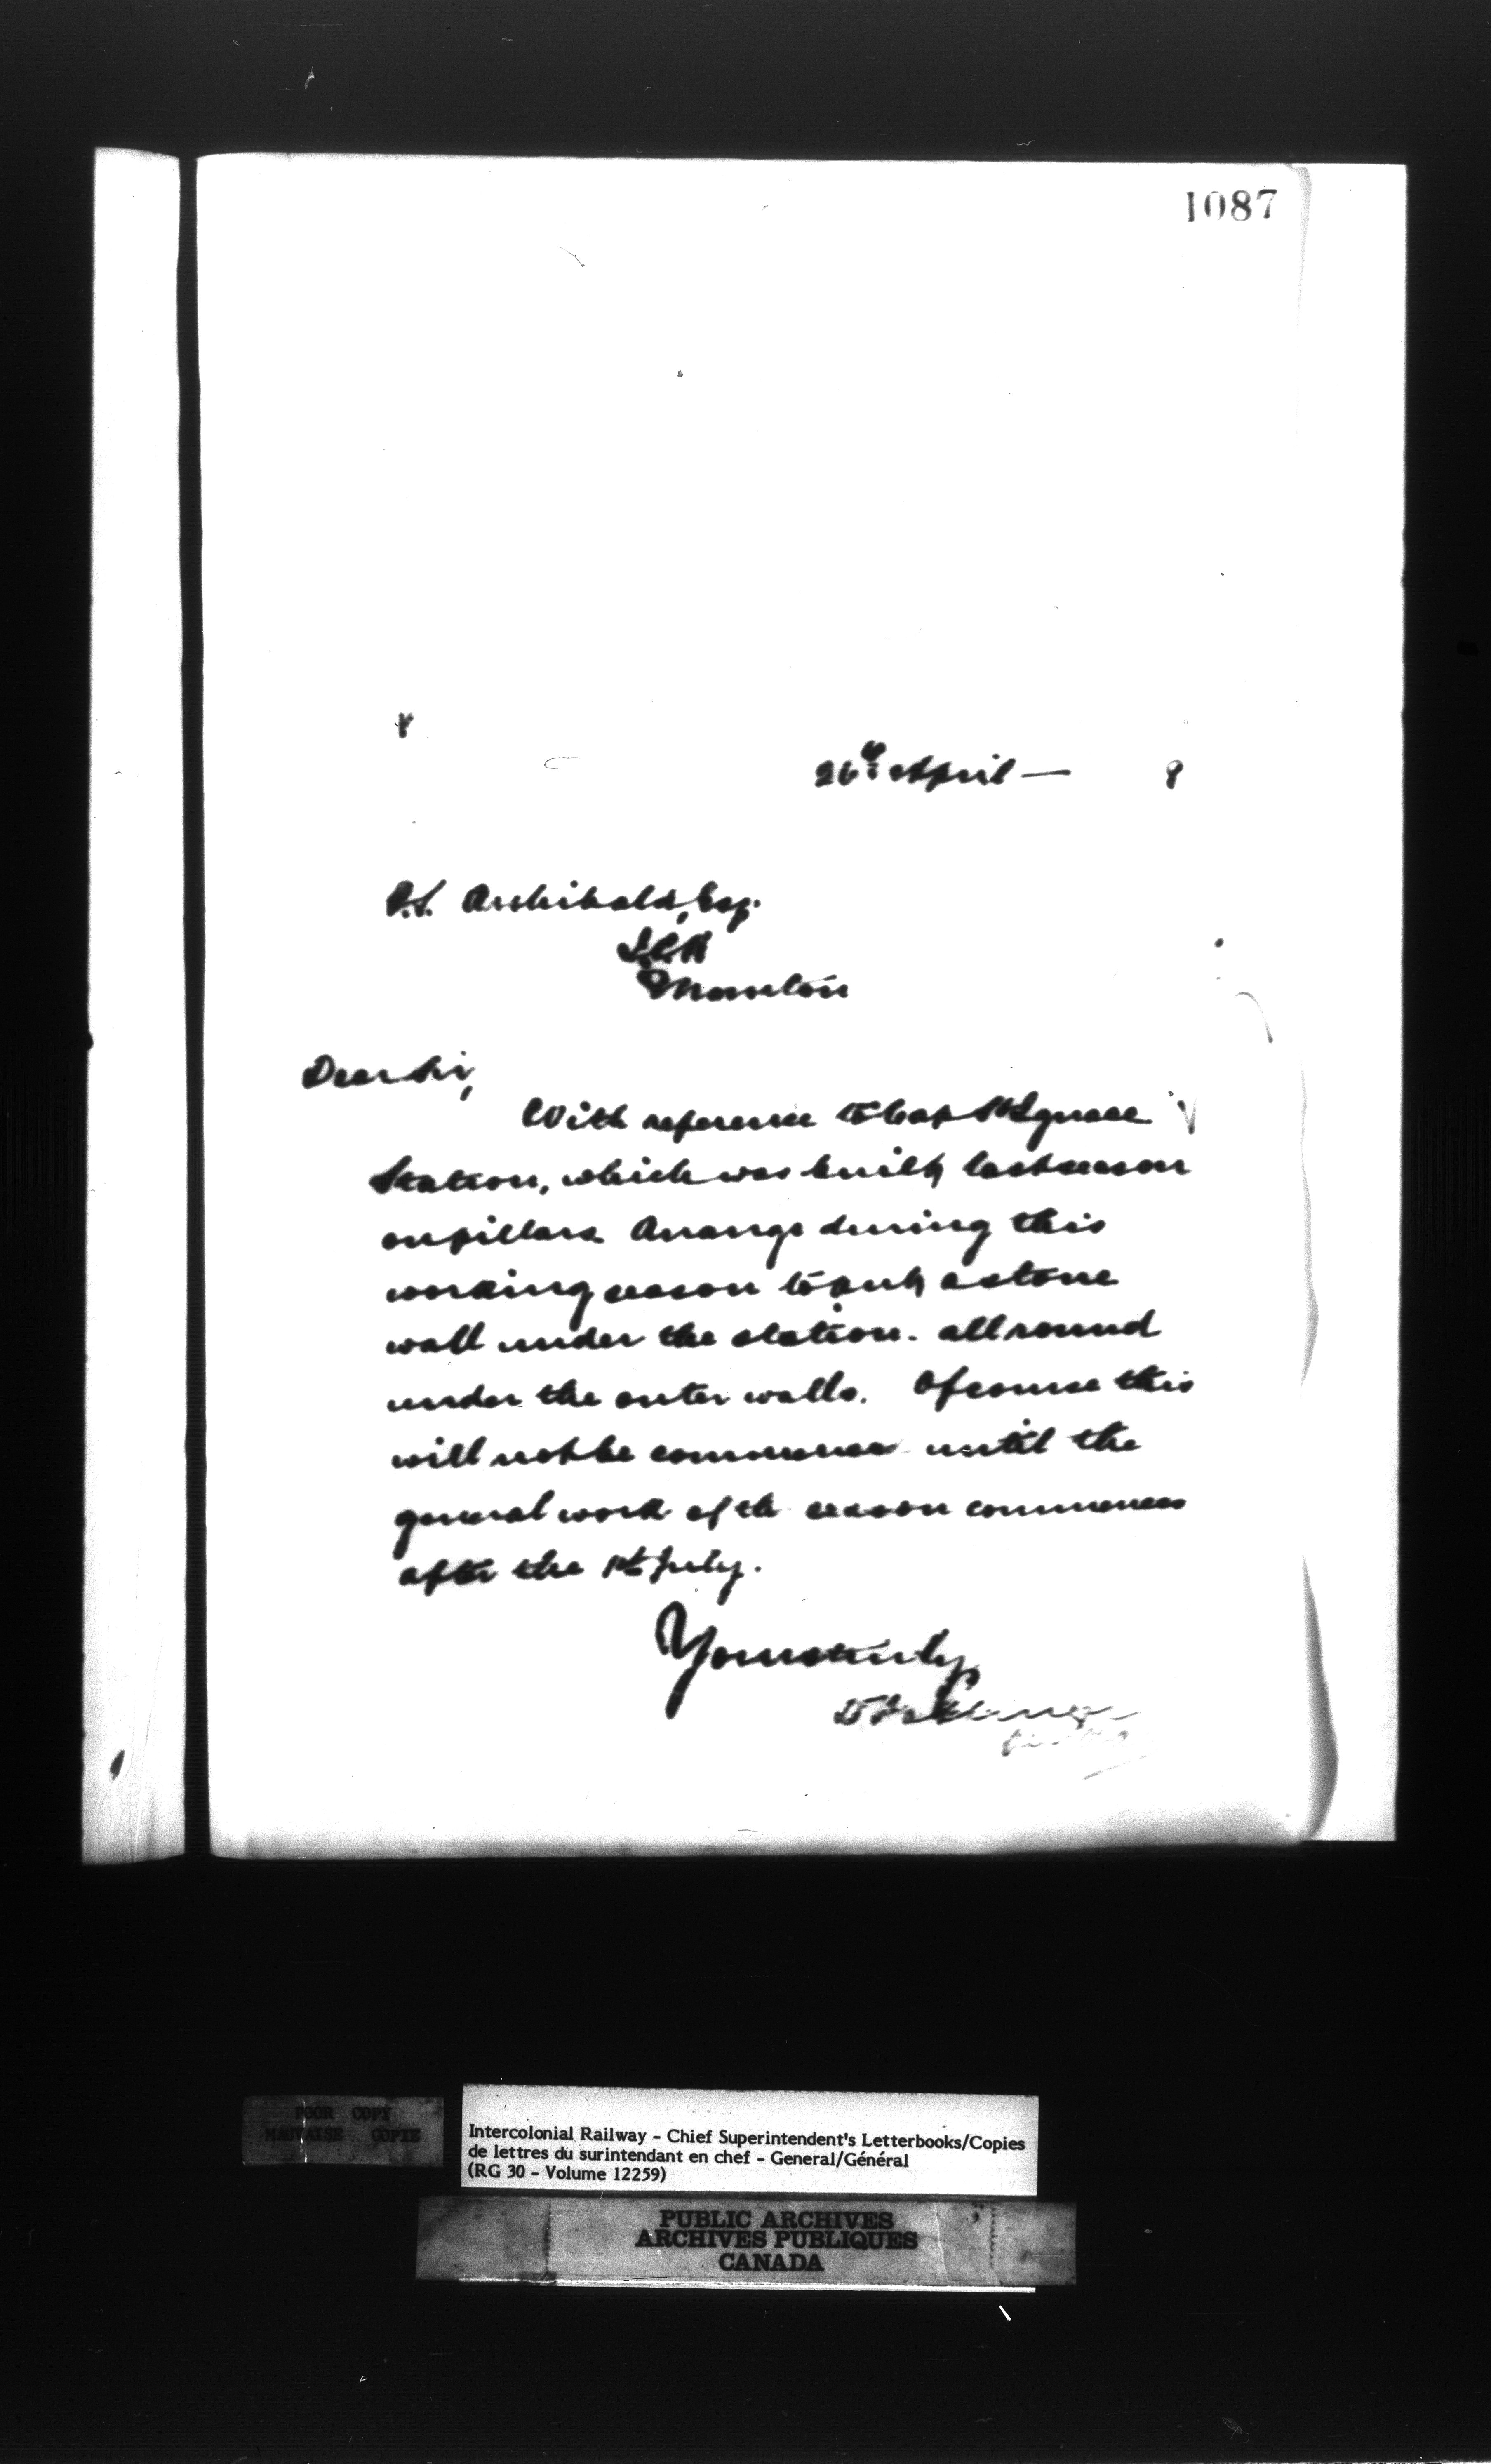 1087
26th April — 8
P.S. Archibald, Esq.
I.C.R
Moncton
Dear Sir,
With reference to Cap St Ignace
Station, which was built last season
on pillars Arrange during this
working season to put a stone
wall under the station. all round
under the outer walls. Of course this
will not be commence until the
general work of the season commences
after the 1st July.
Yours truly
POOR COPY
MAUVAISE COPIE
Intercolonial Railway - Chief Superintendent's Letterbooks/Copies
de lettres du surintendant en chef - General/Général
(RG 30 - Volume 12259)
PUBLIC ARCHIVES
ARCHIVES PUBLIQUES
CANADA